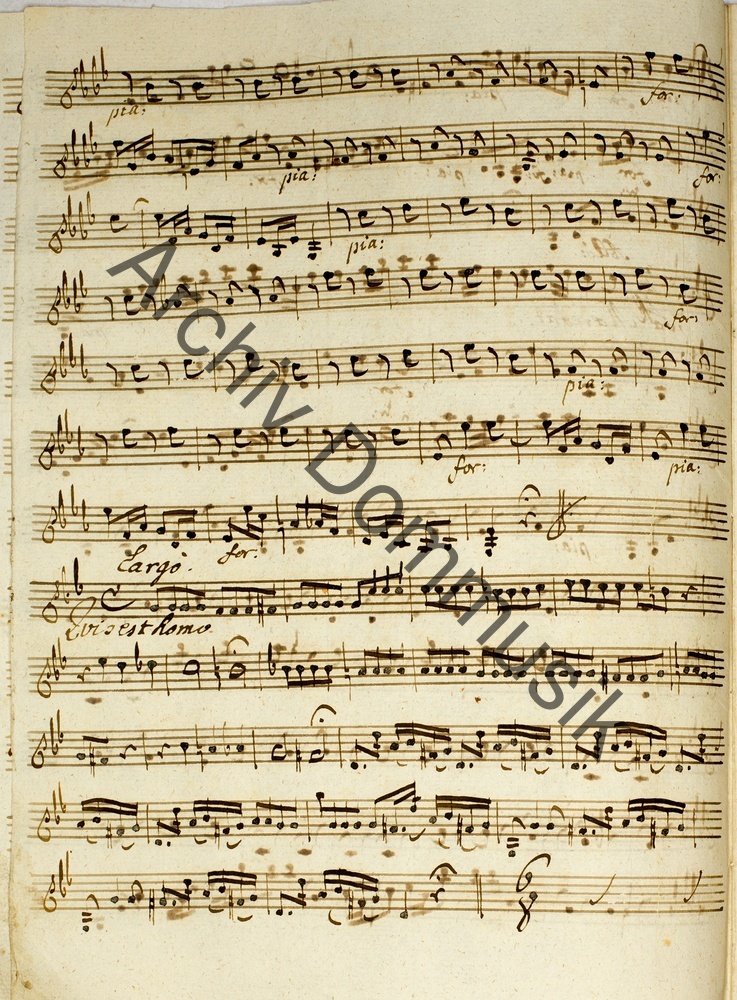 pia: for:
pia: for:
pia:
for:
pia:
for: pia:
for:
Largo.
Quis est homo.
6
8
Archiv Dommusik